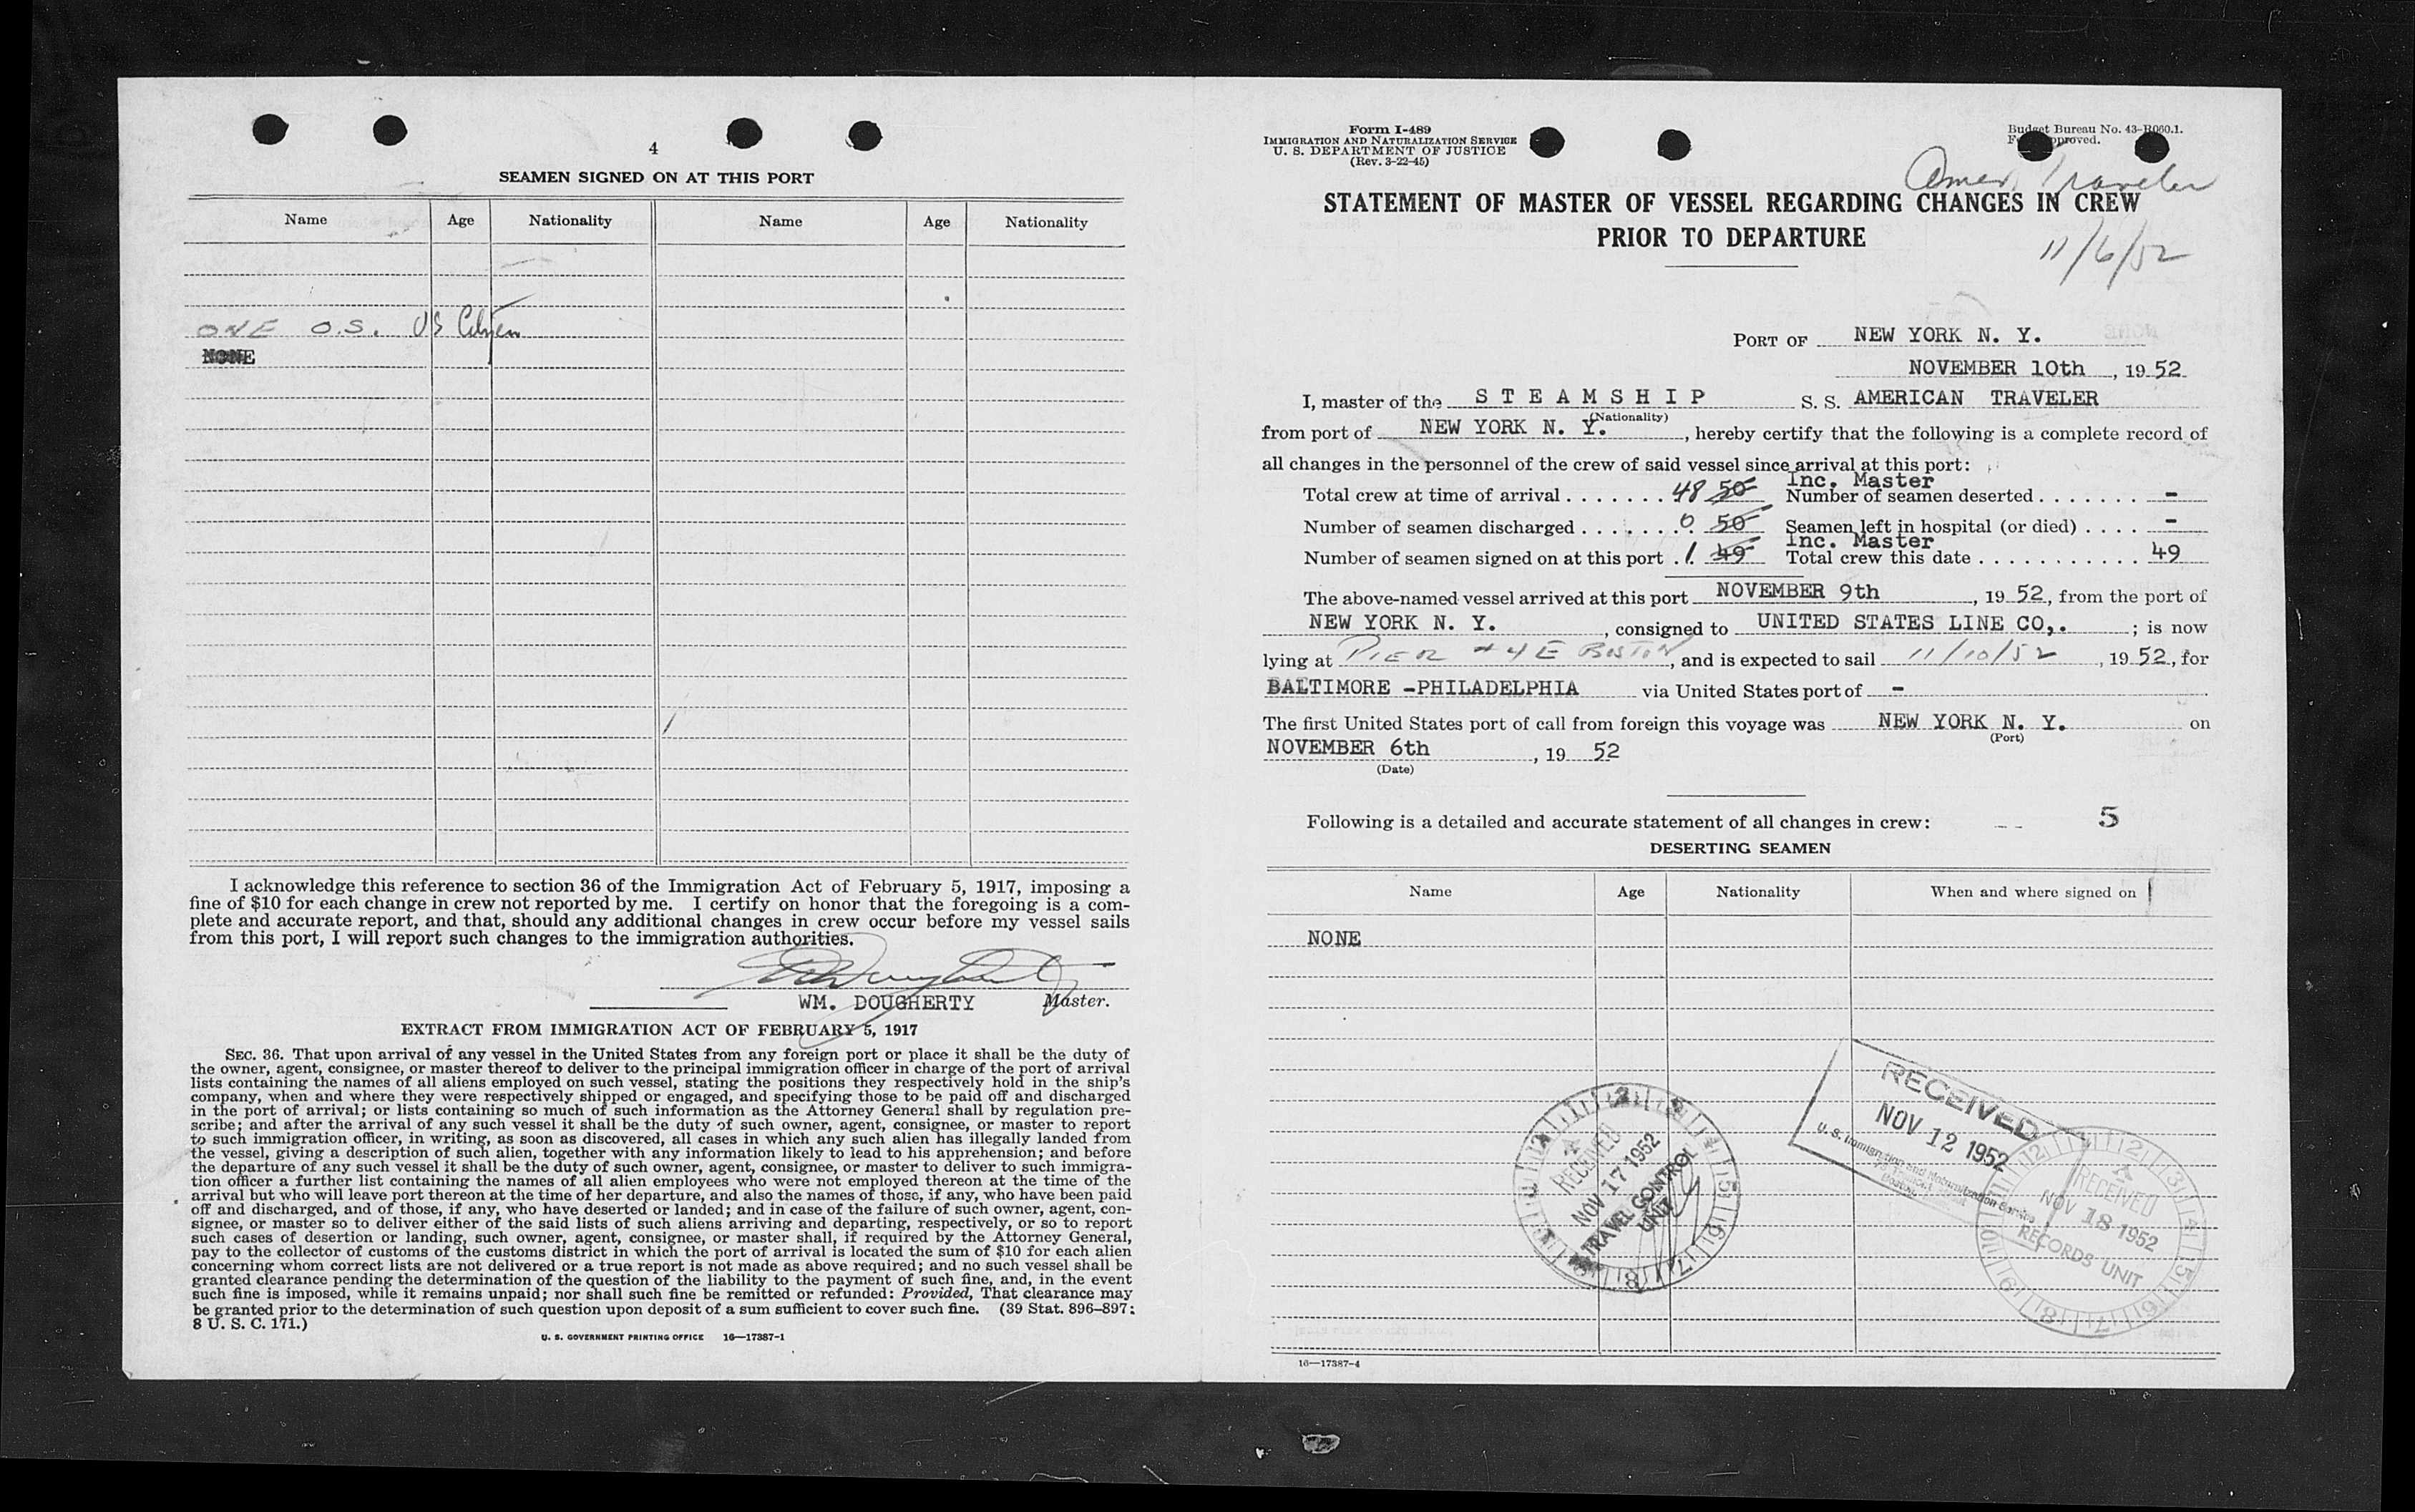 4
SEAMEN SIGNED ON AT THIS PORT
Name Age Nationality Name Age Nationality
ONE O.S. US Citizen
NONE
I acknowledge this reference to section 36 of the Immigration Act of February 5, 1917, imposing a
fine of $10 for each change in crew not reported by me. I certify on honor that the foregoing is a com-
plete and accurate report, and that, should any additional changes in crew occur before my vessel sails
from this port, I will report such changes to the immigration authorities.
WM. DOUGHERTY Master.
EXTRACT FROM IMMIGRATION ACT OF FEBRUARY 5, 1917
SEC. 36. That upon arrival of any vessel in the United States from any foreign port or place it shall be the duty of
the owner, agent, consignee, or master thereof to deliver to the principal immigration officer in charge of the port of arrival
lists containing the names of all aliens employed on such vessel, stating the positions they respectively hold in the ship's
company, when and where they were respectively shipped or engaged, and specifying those to be paid off and discharged
in the port of arrival; or lists containing so much of such information as the Attorney General shall by regulation pre-
scribe; and after the arrival of any such vessel it shall be the duty of such owner, agent, consignee, or master to report
to such immigration officer, in writing, as soon as discovered, all cases in which any such alien has illegally landed from
the vessel, giving a description of such alien, together with any information likely to lead to his apprehension; and before
the departure of any such vessel it shall be the duty of such owner, agent, consignee, or master to deliver to such immigra-
tion officer a further list containing the names of all alien employees who were not employed thereon at the time of the
arrival but who will leave port thereon at the time of her departure, and also the names of those, if any, who have been paid
off and discharged, and of those, if any, who have deserted or landed; and in case of the failure of such owner, agent, con-
signee, or master so to deliver either of the said lists of such aliens arriving and departing, respectively, or so to report
such cases of desertion or landing, such owner, agent, consignee, or master shall, if required by the Attorney General,
pay to the collector of customs of the customs district in which the port of arrival is located the sum of $10 for each alien
concerning whom correct lists are not delivered or a true report is not made as above required; and no such vessel shall be
granted clearance pending the determination of the question of the liability to the payment of such fine, and, in the event
such fine is imposed, while it remains unpaid; nor shall such fine be remitted or refunded: Provided, That clearance may
be granted prior to the determination of such question upon deposit of a sum sufficient to cover such fine. (39 Stat. 896–897;
8 U. S. C. 171.)
U. S. GOVERNMENT PRINTING OFFICE 16—17387-1
Form I-489
IMMIGRATION AND NATURALIZATION SERVICE
U. S. DEPARTMENT OF JUSTICE
(Rev. 3-22-45)
Budget Bureau No. 43-R060.1.
approved.
Amer. Traveler
STATEMENT OF MASTER OF VESSEL REGARDING CHANGES IN CREW
PRIOR TO DEPARTURE
11/6/52
PORT OF NEW YORK N. Y.
NOVEMBER 10th, 1952
I, master of the STEAMSHIP S. S. AMERICAN TRAVELER
(Nationality)
from port of NEW YORK N. Y., hereby certify that the following is a complete record of
all changes in the personnel of the crew of said vessel since arrival at this port:
Inc. Master
Total crew at time of arrival . . . . . . . 48 50 Number of seamen deserted . . . . . . . -
Number of seamen discharged . . . . . . . 0 50 Seamen left in hospital (or died) . . . . -
Inc. Master
Number of seamen signed on at this port . 1 49 Total crew this date . . . . . . . . . . . 49
The above-named vessel arrived at this port NOVEMBER 9th, 1952, from the port of
NEW YORK N. Y., consigned to UNITED STATES LINE CO,. ; is now
lying at PIER #4E BOSTON, and is expected to sail 11/10/52, 1952, for
BALTIMORE -PHILADELPHIA via United States port of -
The first United States port of call from foreign this voyage was NEW YORK N. Y. on
(Port)
NOVEMBER 6th, 1952
(Date)
Following is a detailed and accurate statement of all changes in crew: -- 5
DESERTING SEAMEN
Name Age Nationality When and where signed on
NONE
RECEIVED
NOV 12 1952
U. S. Immigration and Naturalization Service
RECEIVED
NOV 17 1952
TRAVEL CONTROL
UNIT
RECEIVED
NOV 18 1952
RECORDS UNIT
16—17387-4